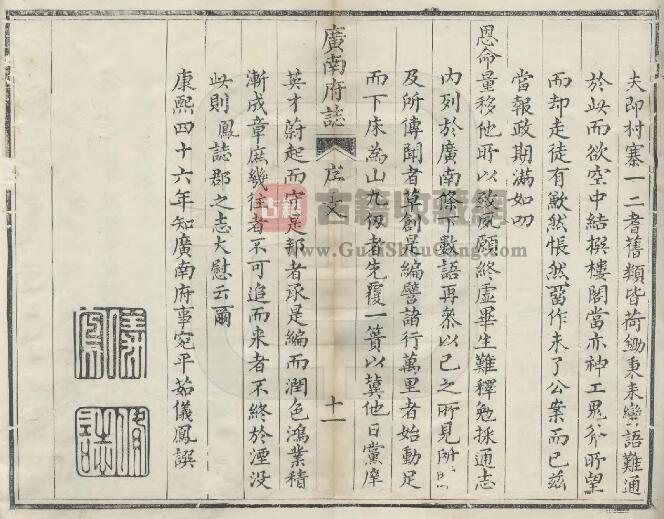 夫即村寨一二耆舊類皆荷鋤秉耒蠻語難通
於此而欲空中結撰樓閣當亦神工鬼斧所望
而却走徒有歉然悵然留作未了公案而已茲
當報政期滿如叨
恩命量移他所以致夙願終虛畢生難釋勉採通志
內列於廣南條下數語再叅以已之所見所
及所傳聞者草創是編譬諸行萬里者始動足
而下床為山九仭者先覆一簣以冀他日黨岸
廣南府誌 序文 十一
英才蔚起而守是邦者承是編而潤色鴻業積
漸成章庶幾往者不可追而来者不終於湮没
此則鳳誌郡之志大慰云爾
康熙四十六年知廣南府事宛平茹儀鳳譔
儀鳳
古籍收蒐網
www.GuJiShouCang.com